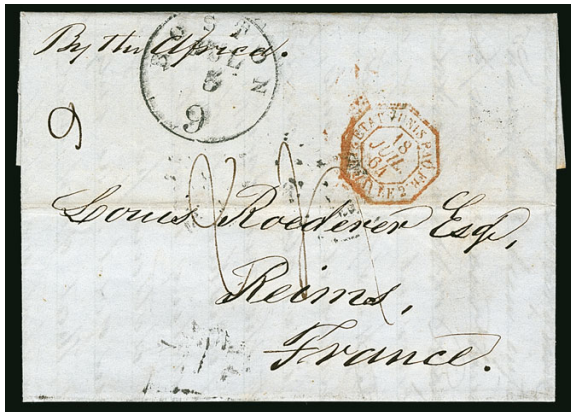 By the Africa.
BOSTON
JUL
3
9
9
ETATS UNIS PAQ. FR.
18
JUIL
61
2
Louis Roederer Esq,
Reims,
France.